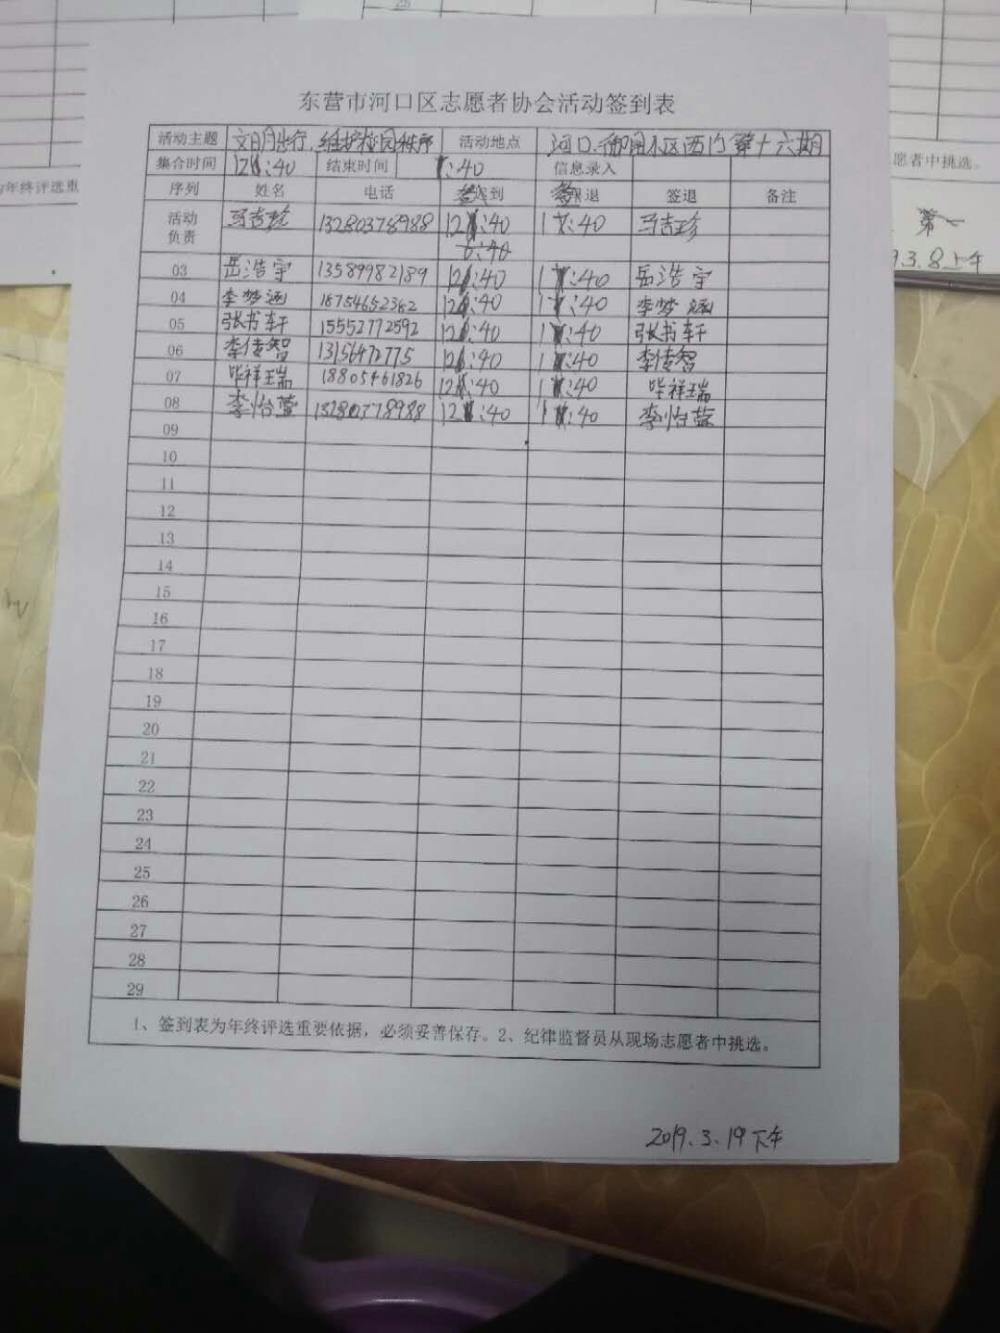 东营市河口区志愿者协会活动签到表
活动主题 文明出行，维护校园秩序 活动地点 河口 御园小区西门 第十六期
集合时间 :40 结束时间 :40 信息录入
序列 姓名 电话 签到 签退 签退 备注
活动负责 马吉珍 13280378988 12:40 1:40 马吉珍
03 岳浩宇 13589982189 12:40 1:40 岳浩宇
04 李梦涵 18754652362 12:40 1:40 李梦涵
05 张书轩 15552772592 12:40 1:40 张书轩
06 李传智 13156472775 12:40 1:40 李传智
07 毕祥瑞 18805461826 12:40 1:40 毕祥瑞
08 李怡萱 13280378988 12:40 1:40 李怡萱
09
10
11
12
13
14
15
16
17
18
19
20
21
22
23
24
25
26
27
28
29
1、签到表为年终评选重要依据，必须妥善保存。2、纪律监督员从现场志愿者中挑选。
2019.3.19下午
愿者中挑选。
年终评选重
第一
3.8上午